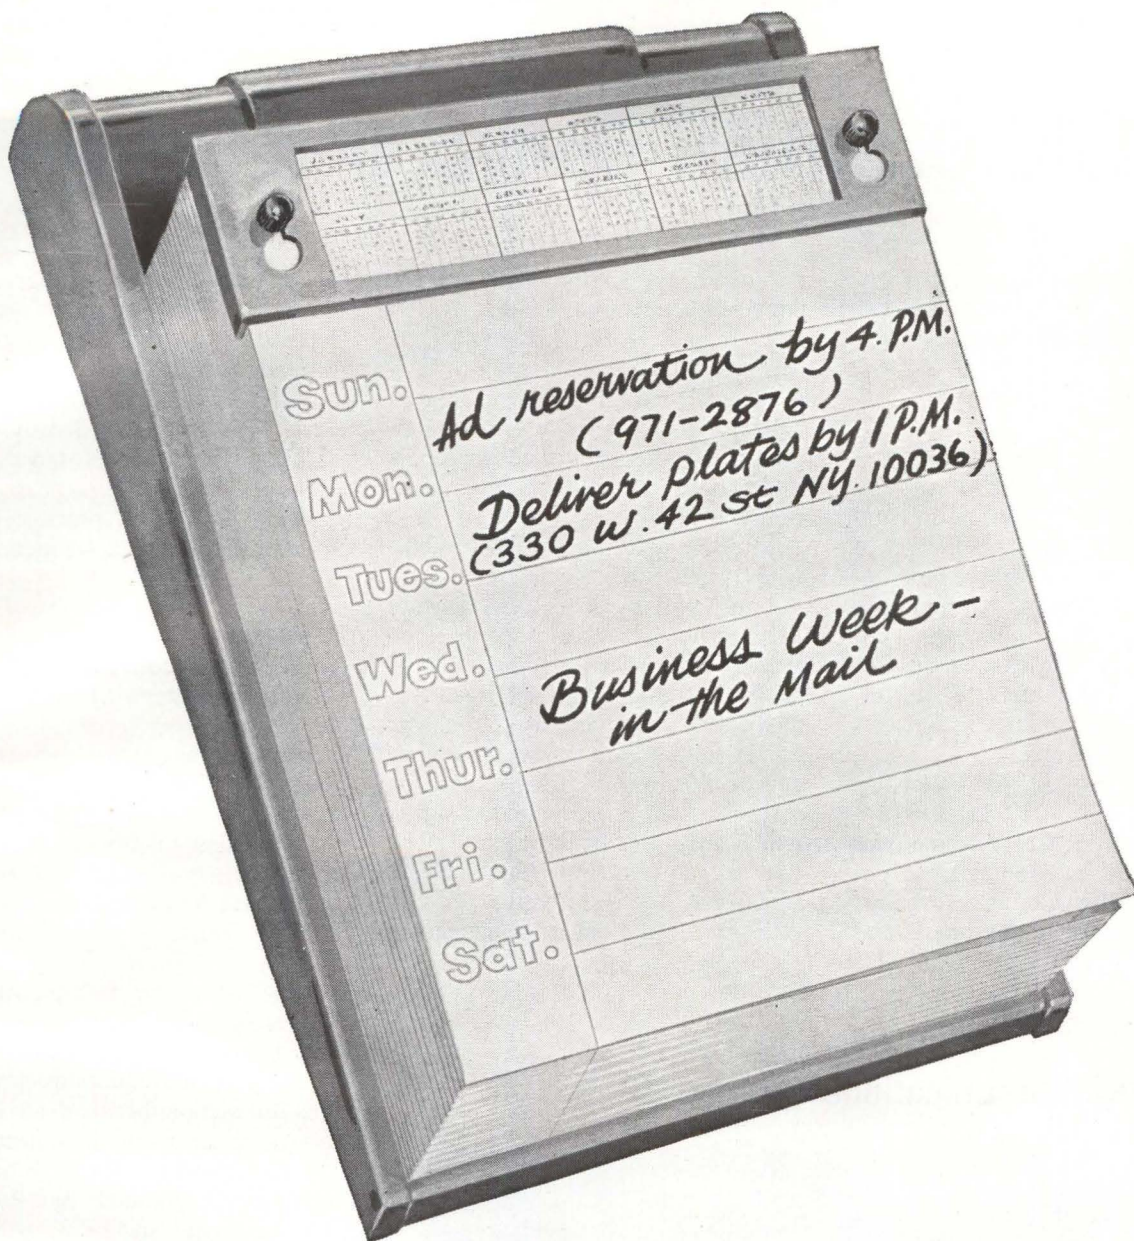 Sun.
Mon.
Ad reservation by 4. P.M.
(971-2876)
Tues.
Deliver plates by 1 P.M.
(330 W. 42 St NY. 10036)
Wed.
Thur.
Business Week -
in the Mail
Fri.
Sat.